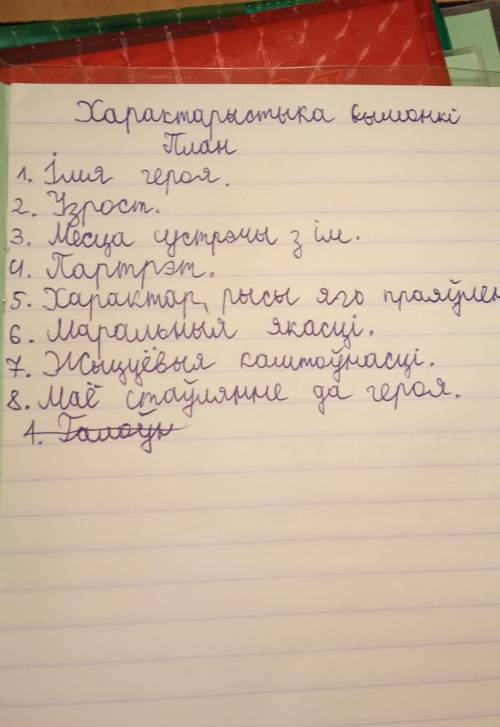 Характарыстыка Сымонкі
План
1. Імя героя.
2. Узрост.
3. Месца сустрэчы з ім.
4. Партрэт.
5. Характар, рысы яго праяўлен
6. Маральныя якасці.
7. Жыццёвыя каштоўнасці.
8. Маё стаўлянне да героя.
1. Галоўн